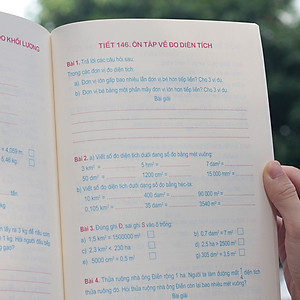 O KHỐI LƯỢNG
TIẾT 146. ÔN TẬP VỀ ĐO DIỆN TÍCH
Bài 1. Trả lời các câu hỏi sau:
Trong các đơn vị đo diện tích:
a) Đơn vị lớn gấp bao nhiêu lần đơn vị bé hơn tiếp liền? Cho 3 ví dụ.
b) Đơn vị bé bằng một phần mấy đơn vị lớn hơn tiếp liền? Cho 3 ví dụ.
Bài giải
Bài 2. a) Viết số đo diện tích dưới dạng số đo bằng mét vuông:
3 km² = 5 hm² = 7 dam² =
50 dm² = 1200 cm² = 15 000 mm² =
b) Viết số đo diện tích dưới dạng số đo bằng héc-ta:
10 km² = 400 dam² = 90 000 m² =
0,105 km² = 35 dam² = 3540 m² =
Bài 3. Đúng ghi Đ, sai ghi S vào ô trống:
a) 1,5 km² = 1500000 m²
b) 0,7 dam² = 7 m²
c) 2,3 km² = 230 ha
d) 2,5 ha = 2500 m²
e) 5000 cm² = 0,5 m²
g) 305 m² = 3,5 dam²
Bài 4. Thửa ruộng nhà ông Điền rộng 1 ha. Người ta làm đường mất diện tích
thửa ruộng đó. Hỏi thửa ruộng nhà ông Điền còn lại bao nhiêu mét vuông?
Bài giải